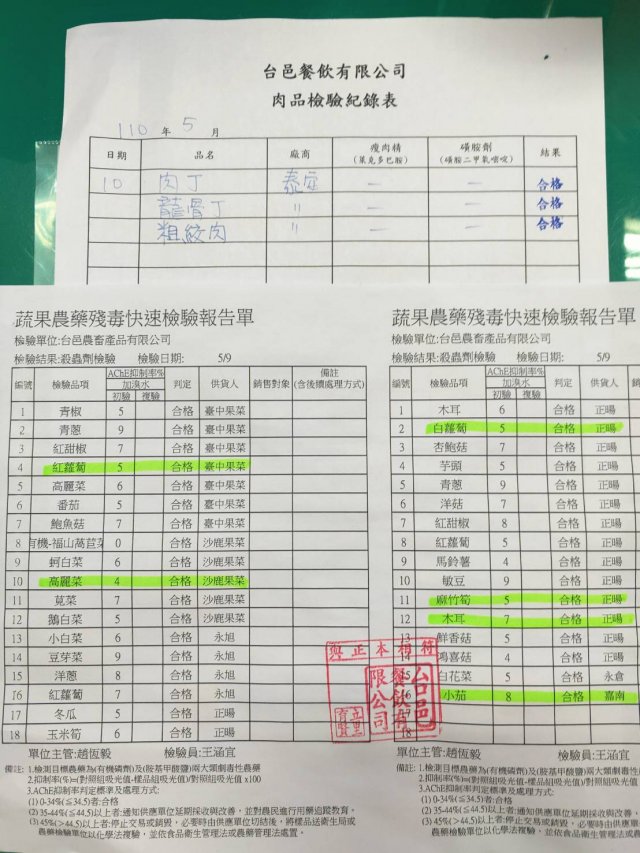 台邑餐飲有限公司
肉品檢驗紀錄表
110 年 5 月
日期 品名 廠商 瘦肉精 (萊克多巴胺) 磺胺劑 (磺胺二甲氧嘧啶) 結果
10 肉丁 泰安 — — 合格
龍骨丁 〃 — — 合格
粗絞肉 〃 — — 合格
蔬果農藥殘毒快速檢驗報告單
檢驗單位:台邑農畜產品有限公司
檢驗結果:殺蟲劑檢驗 檢驗日期: 5/9
編號 檢驗品項 AChE抑制率% 加溴水 初驗 複驗 判定 供貨人 銷售對象 備註 (含後續處理方式)
1 青椒 5 合格 臺中果菜
2 青蔥 9 合格 臺中果菜
3 紅甜椒 7 合格 臺中果菜
4 紅蘿蔔 5 合格 臺中果菜
5 高麗菜 6 合格 臺中果菜
6 番茄 5 合格 臺中果菜
7 鮑魚菇 7 合格 臺中果菜
8 有機-福山萵苣菜 0 合格 沙鹿果菜
9 蚵白菜 6 合格 沙鹿果菜
10 高麗菜 4 合格 沙鹿果菜
11 莧菜 7 合格 沙鹿果菜
12 鵝白菜 5 合格 沙鹿果菜
13 小白菜 6 合格 永旭
14 豆芽菜 9 合格 永旭
15 洋蔥 8 合格 永旭
16 紅蘿蔔 7 合格 永旭
17 冬瓜 5 合格 正暘
18 玉米筍 6 合格 正暘
單位主管:趙恆毅 檢驗員:王涵宜
備註: 1.檢測目標農藥為(有機磷劑)及(胺基甲酸鹽)兩大類劇毒性農藥
2.抑制率(%)=(對照組吸光值-樣品組吸光值)/對照組吸光值 x100
3.AChE抑制率判定標準及處理方式:
(1) 0-34%(≦34.5)者:合格
(2) 35-44%(≦44.5)以上者:通知供應單位延期採收與改善，並對農民進行用藥追蹤教育。
(3) 45%(>44.5)以上者:停止交易或銷毀，必要時由供應單位切結後，將樣品送衛生局或
農藥檢驗單位以化學法複驗，並依食品衛生管理法或農藥管理法處置。
蔬果農藥殘毒快速檢驗報告單
檢驗單位:台邑農畜產品有限公司
檢驗結果:殺蟲劑檢驗 檢驗日期: 5/9
編號 檢驗品項 AChE抑制率% 加溴水 初驗 複驗 判定 供貨人 銷
1 木耳 6 合格 正暘
2 白蘿蔔 5 合格 正暘
3 杏鮑菇 7 合格 正暘
4 芋頭 5 合格 正暘
5 青蔥 9 合格 正暘
6 洋菇 7 合格 正暘
7 紅甜椒 8 合格 正暘
8 紅蘿蔔 5 合格 正暘
9 馬鈴薯 4 合格 正暘
10 敏豆 9 合格 正暘
11 麻竹筍 5 合格 正暘
12 木耳 7 合格 正暘
13 鮮香菇 5 合格 正暘
14 鴻喜菇 4 合格 正暘
15 白花菜 5 合格 永倉
16 小茄 8 合格 嘉南
17
18
與正本相符
台邑餐飲有限公司
單位主管:趙恆毅 檢驗員:王涵宜
備註: 1.檢測目標農藥為(有機磷劑)及(胺基甲酸鹽)兩大類劇毒性
2.抑制率(%)=(對照組吸光值-樣品組吸光值)/對照組吸光值
3.AChE抑制率判定標準及處理方式:
(1) 0-34%(≦34.5)者:合格
(2) 35-44%(≦44.5)以上者:通知供應單位延期採收與改善
(3) 45%(>44.5)以上者:停止交易或銷毀，必要時由供應單位
農藥檢驗單位以化學法複驗，並依食品衛生管理法或農